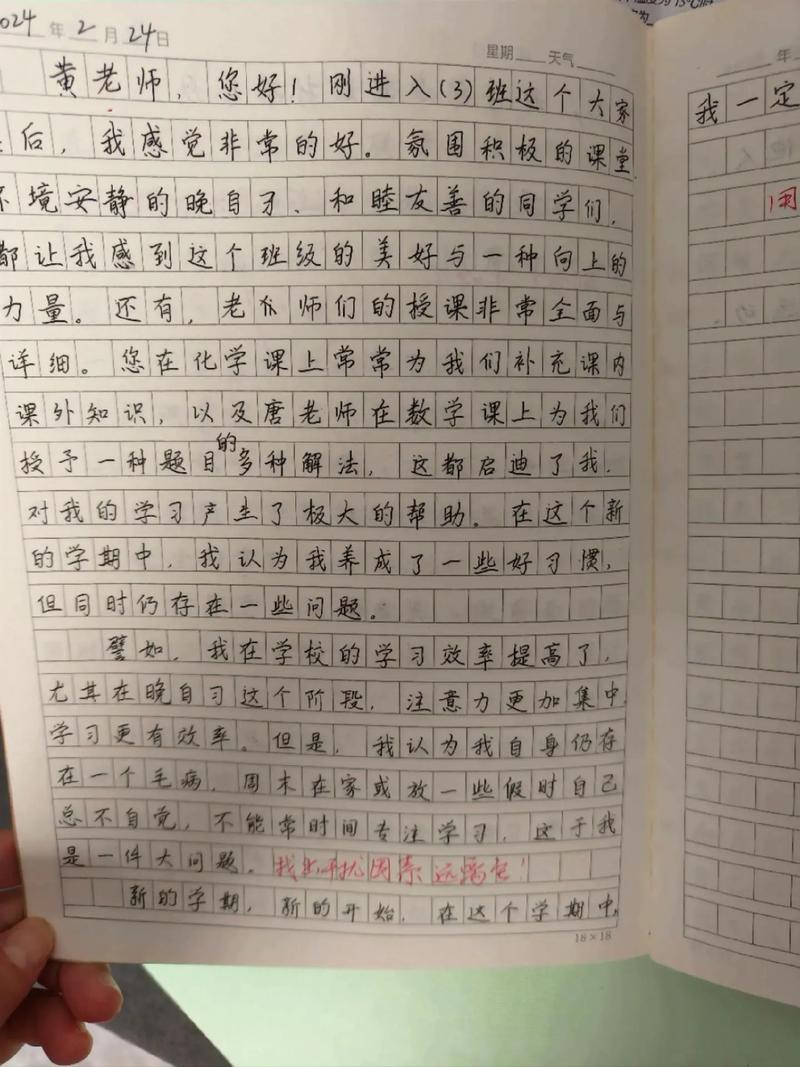 2024年2月24日 星期 天气
黄老师,您好!刚进入(3)班这个大家
后,我感觉非常的好。氛围积极的课堂
环境安静的晚自习、和睦友善的同学们,
都让我感到这个班级的美好与一种向上的
力量。还有,老师们的授课非常全面与
详细。您在化学课上常常为我们补充课内
课外知识,以及唐老师在数学课上为我们
授予一种题目的多种解法,这都启迪了我,
对我的学习产生了极大的帮助。在这个新
的学期中,我认为我养成了一些好习惯,
但同时仍存在一些问题。
譬如,我在学校的学习效率提高了,
尤其在晚自习这个阶段,注意力更加集中,
学习更有效率。但是,我认为我自身仍存
在一个毛病,周末在家或放一些假时自己
总不自觉,不能常时间专注学习,这于我
是一件大问题。找出干扰因素远离它!
新的学期,新的开始,在这个学期中,
18×18
年
我一定